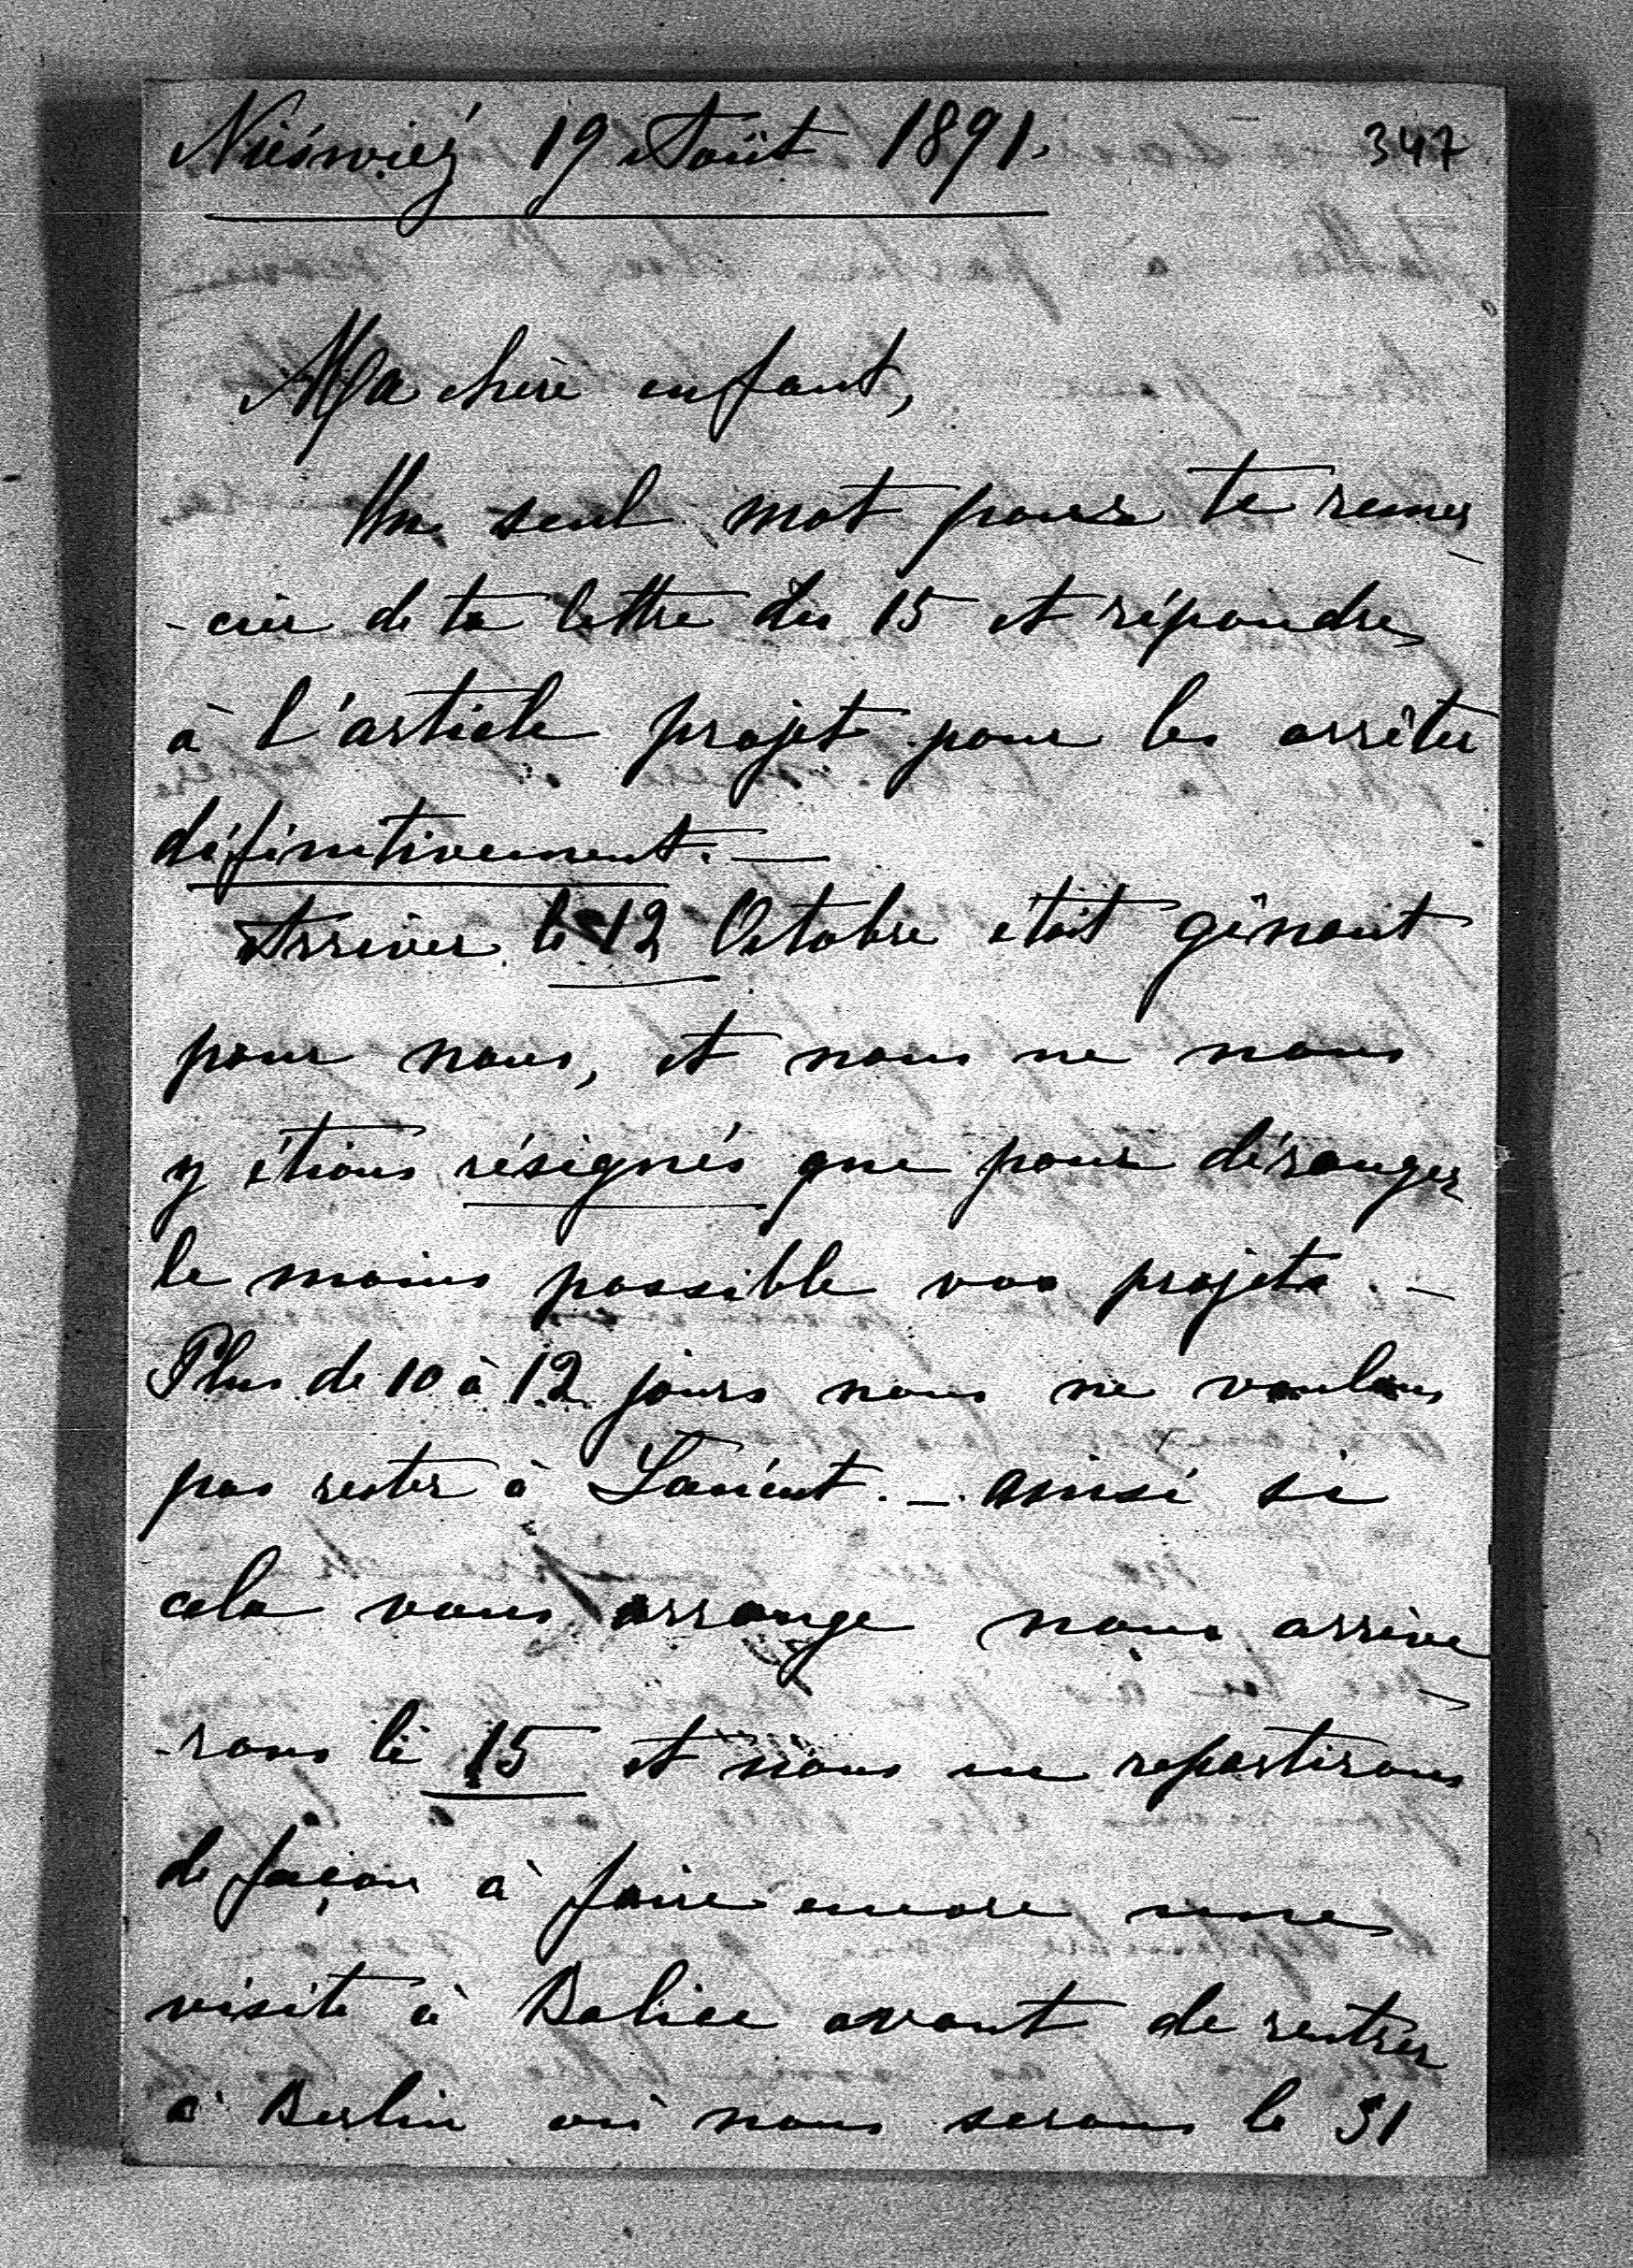 Nieśwież 19 Août 1891. 347
Ma chère enfant,
Un seul mot pour te remer
-cier de ta lettre du 15 et répondre
à l'article projet pour les arrêter
définitivement. —
Arriver le 12 Octobre était gênant
pour nous, et nous ne nous
y étions résignés que pour déranger
le moins possible vos projets. —
Plus de 10 à 12 jours nous ne voulons
pas rester à Łańcut. — ainsi si
cela vous arrange nous arrive
-rons le 15 et nous en repartirons
de façon à faire encore une
visite à Balice avant de rentrer
à Berlin où nous serons le 31